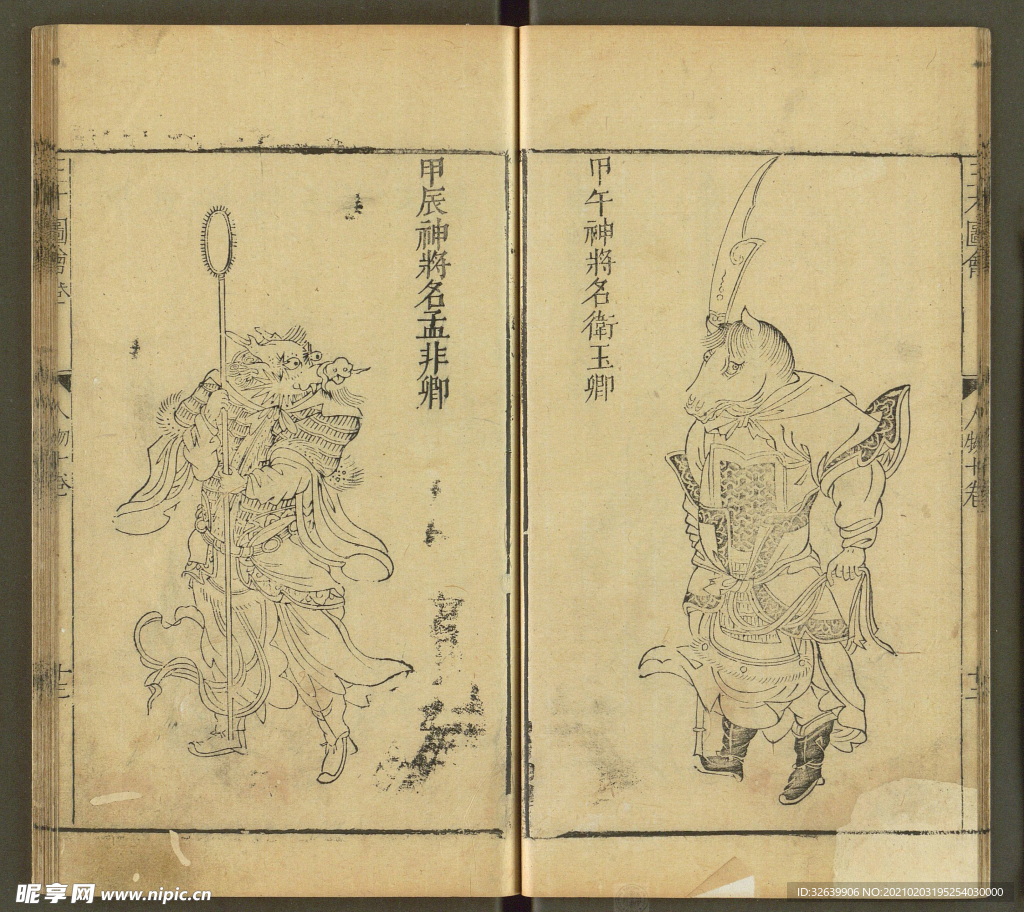 三才圖會
人物十卷
甲午神將名衛玉卿
甲辰神將名孟非卿
圖會
人物十卷
昵享网 www.nipic.cn
ID:32639906 NO:20210203195254030000